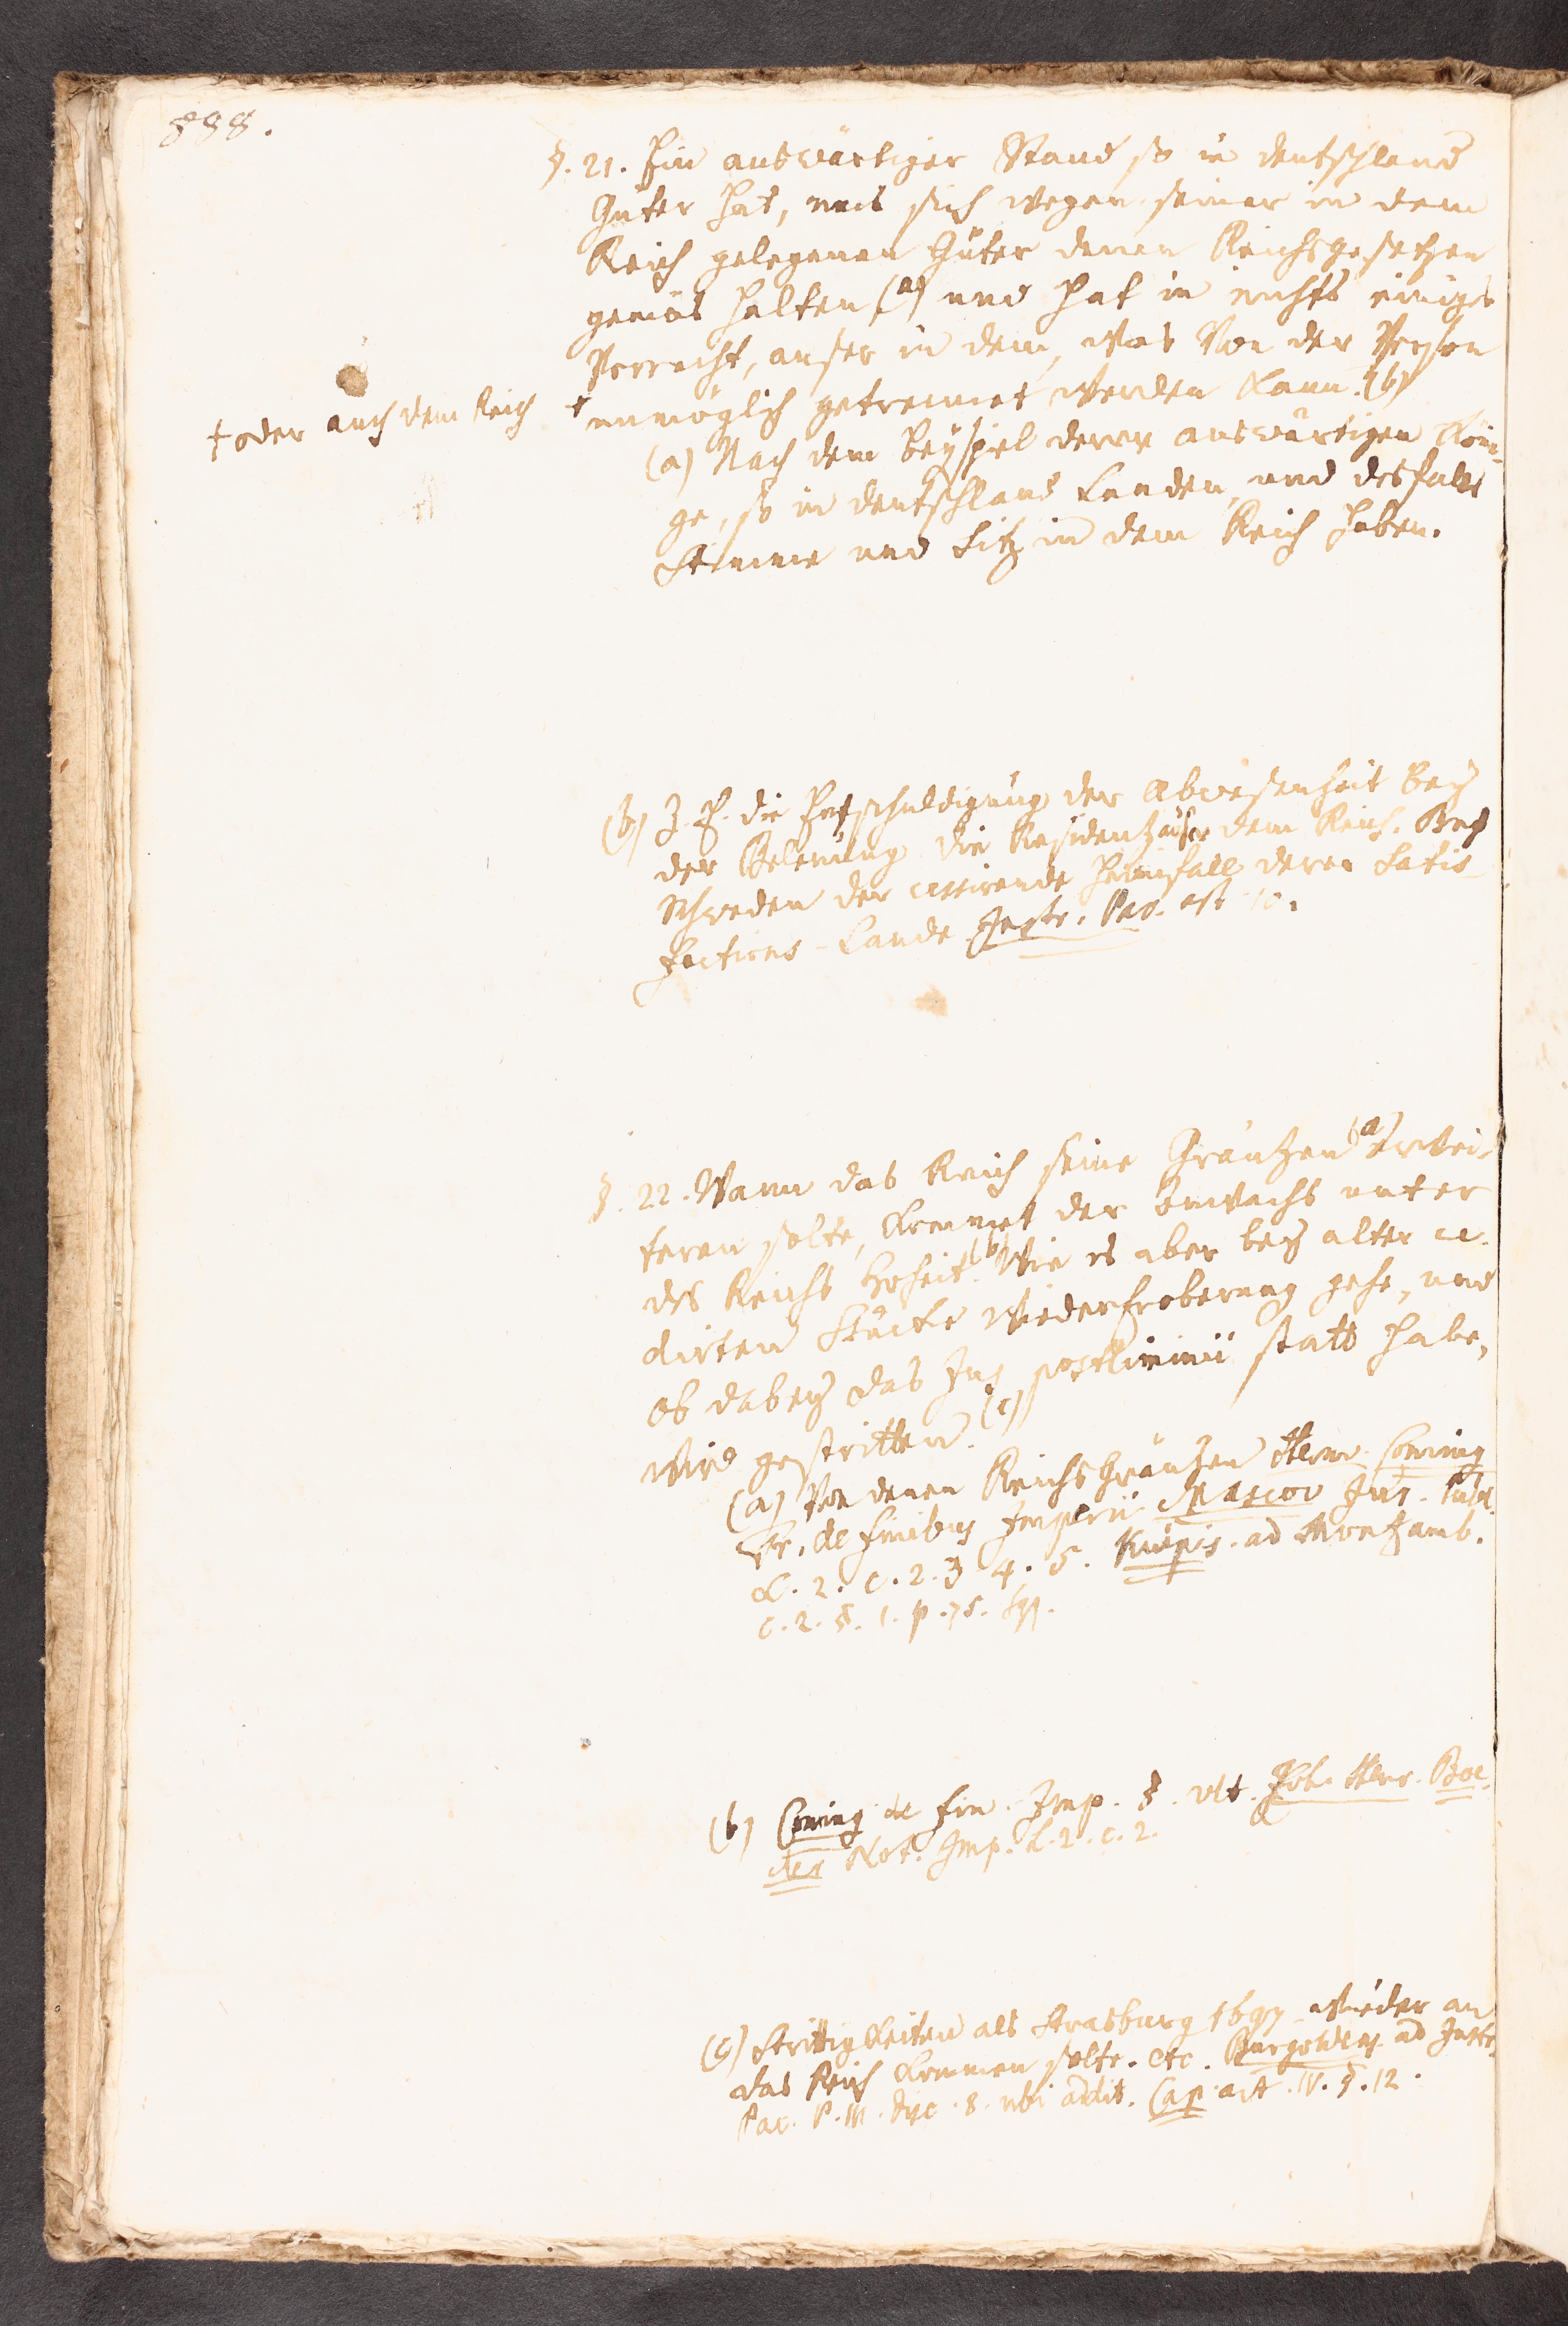 888.
§. 21. Ein auswärtiger Stand so in deutschland
Güter hat, mus sich wegen seiner in dem
Reich gelegenen Güter denen Reichsgesetzen
gemäs halten (a) und hat in nichts einiges
Vorrecht, auser in dem, was Von der Person
† oder auch dem Reich
† unmöglich getrennet werden kann. (b)
(a) Nach dem Beyspiel derer auswärtigen Köni-
ge, so in deutschland Landen, und desfals
Stimme und Sitz in dem Reich haben.
(b) Z. E. die Entschuldigung der Abwesenheit bey
der Belenung die Residenz auser dem Reich. Bey
Schweden der cessirende Heimfall derer Satis-
factions-Lande Instr. Pac. art 10.
§. 22. Wann das Reich seine Gräntzen (a) erwei-
teren solte, kommet der Zuwachs unter
des Reichs Hoheit. (b) Wie es aber bey alter ce-
dirten Stücke Wiedereroberung gehe, und
ob dabey das Jus postliminii statt habe,
wird gestritten. (c)
(a) Von denen Reichs Gräntzen Herm. Conring
Tr. de finibus Imperii Mascov Jur. Publ.
L. 2. c. 2. 3. 4. 5. Kulpis. ad Monzamb.
c. 2. §. 1. p. 75. sqq.
(b) Conring de fin. Imp. §. ult. Joh. Henr. Boe-
cler Not. Imp. L. 2. c. 2.
(c) Strittigkeiten als Strasburg 1697 wieder an
das Reich kommen solte. etc. Burgoldens. ad Instr.
Pac. P. III. disc. 8. ubi addit. Cap. art. IV. §. 12.